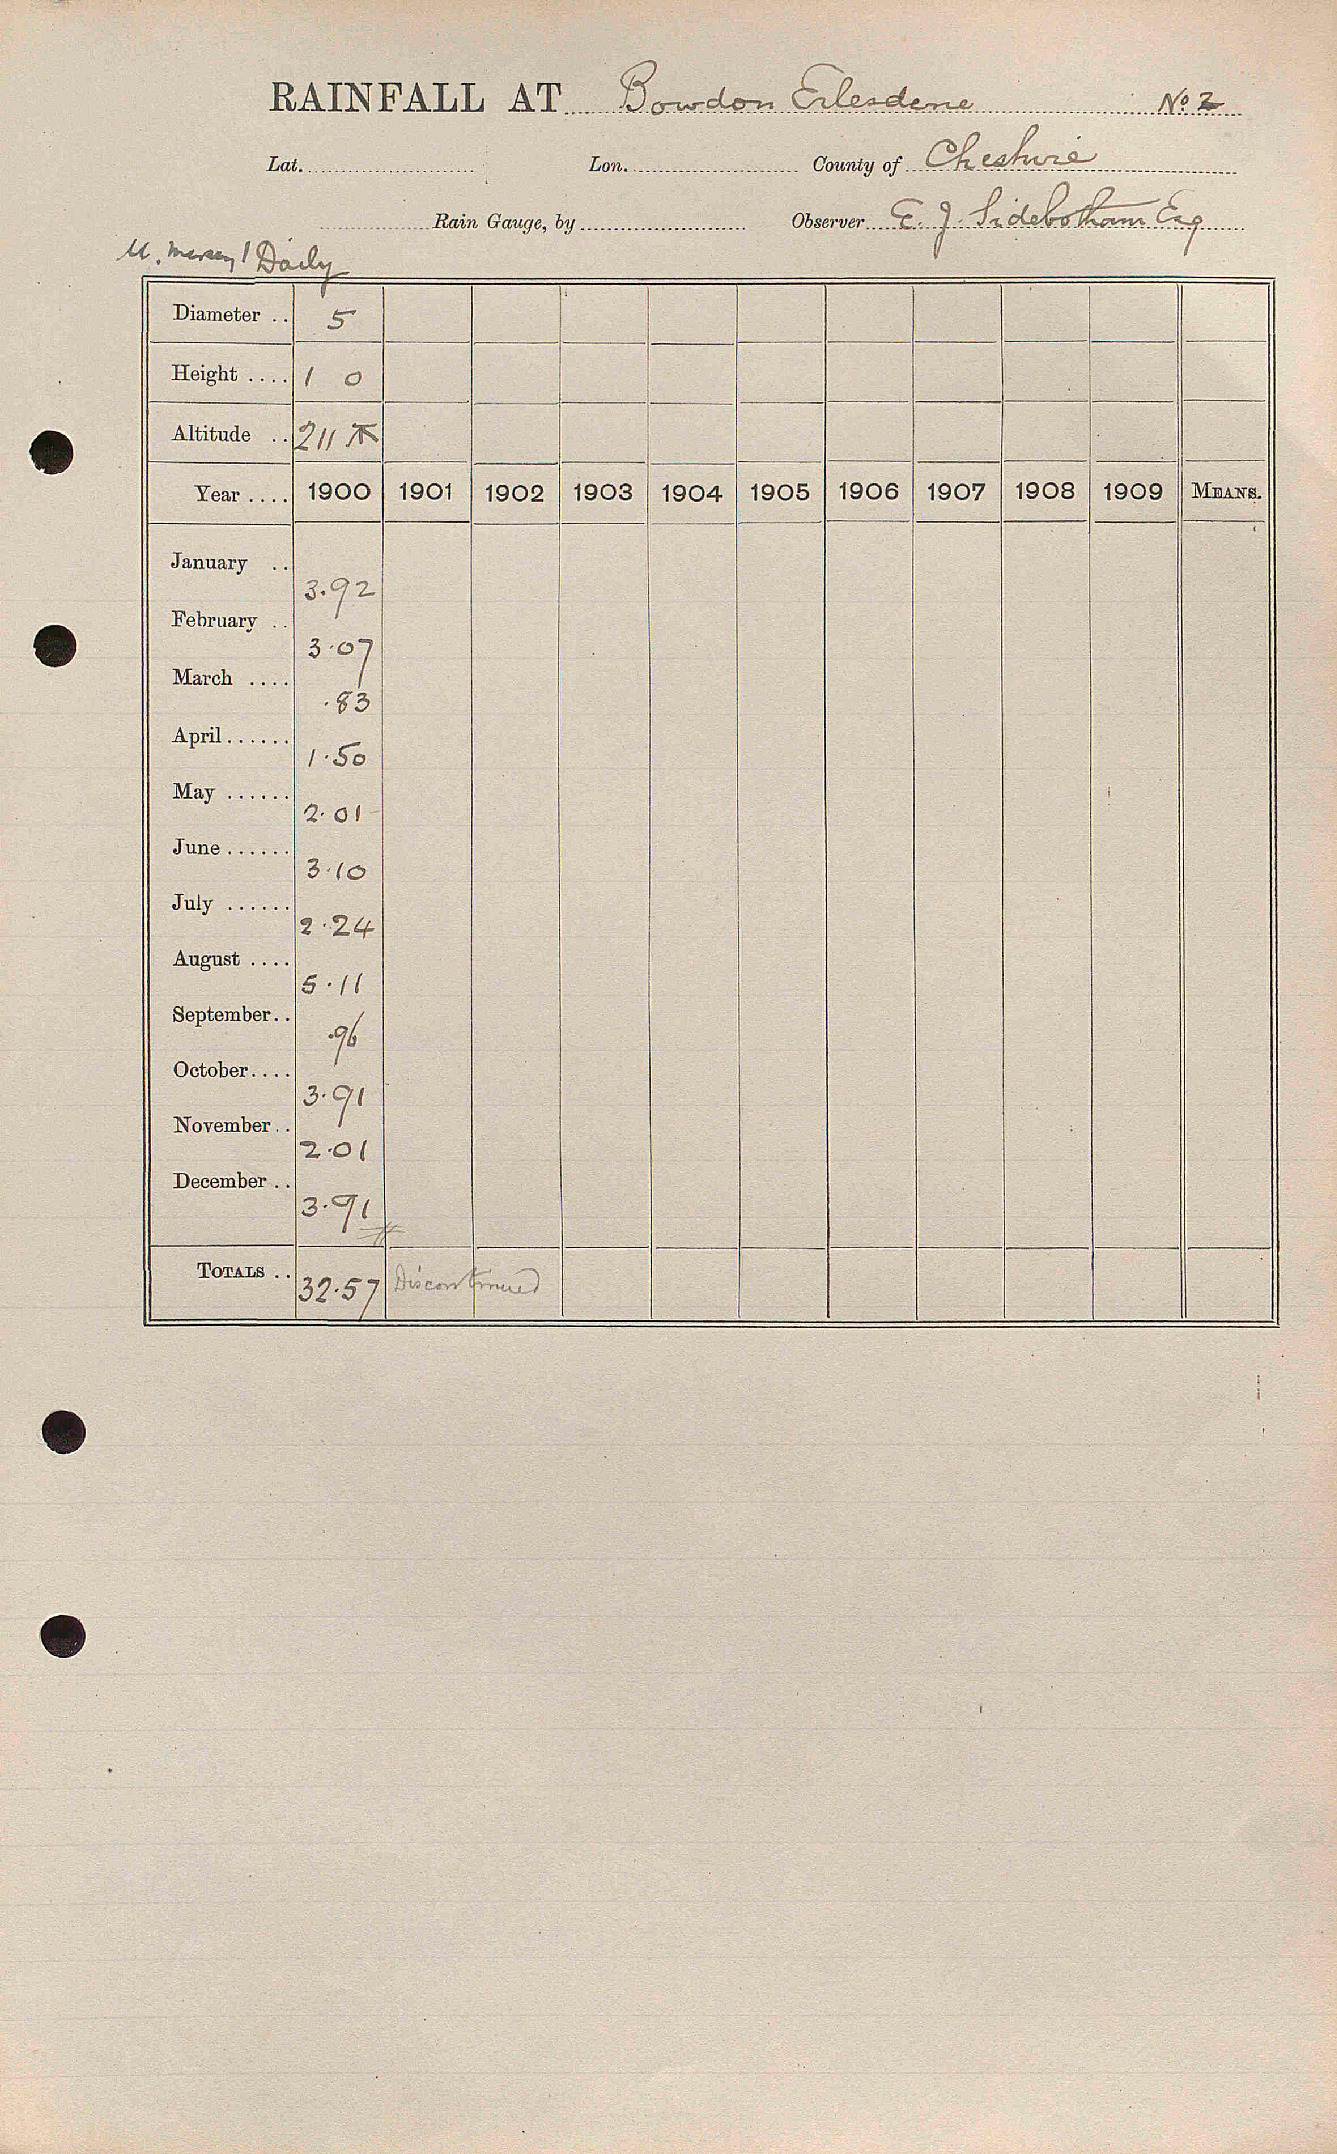 RAINFALL AT Bowdon Erlesdene No 2
Lat. Lon. County of Cheshire
Rain Gauge, by Observer E. J. Sidebotham Esq
M. Mersey / Daily
Diameter .. 5
Height .... 1 0
Altitude .. 211
Year .... 1900 1901 1902 1903 1904 1905 1906 1907 1908 1909 MEANS.
January .. 3.92
February .. 3.07
March .... .83
April...... 1.50
May ...... 2.01
June...... 3.10
July ...... 2.24
August .... 5.11
September.. .96
October.... 3.91
November.. 2.01
December .. 3.91
TOTALS .. 32.57 Discontinued